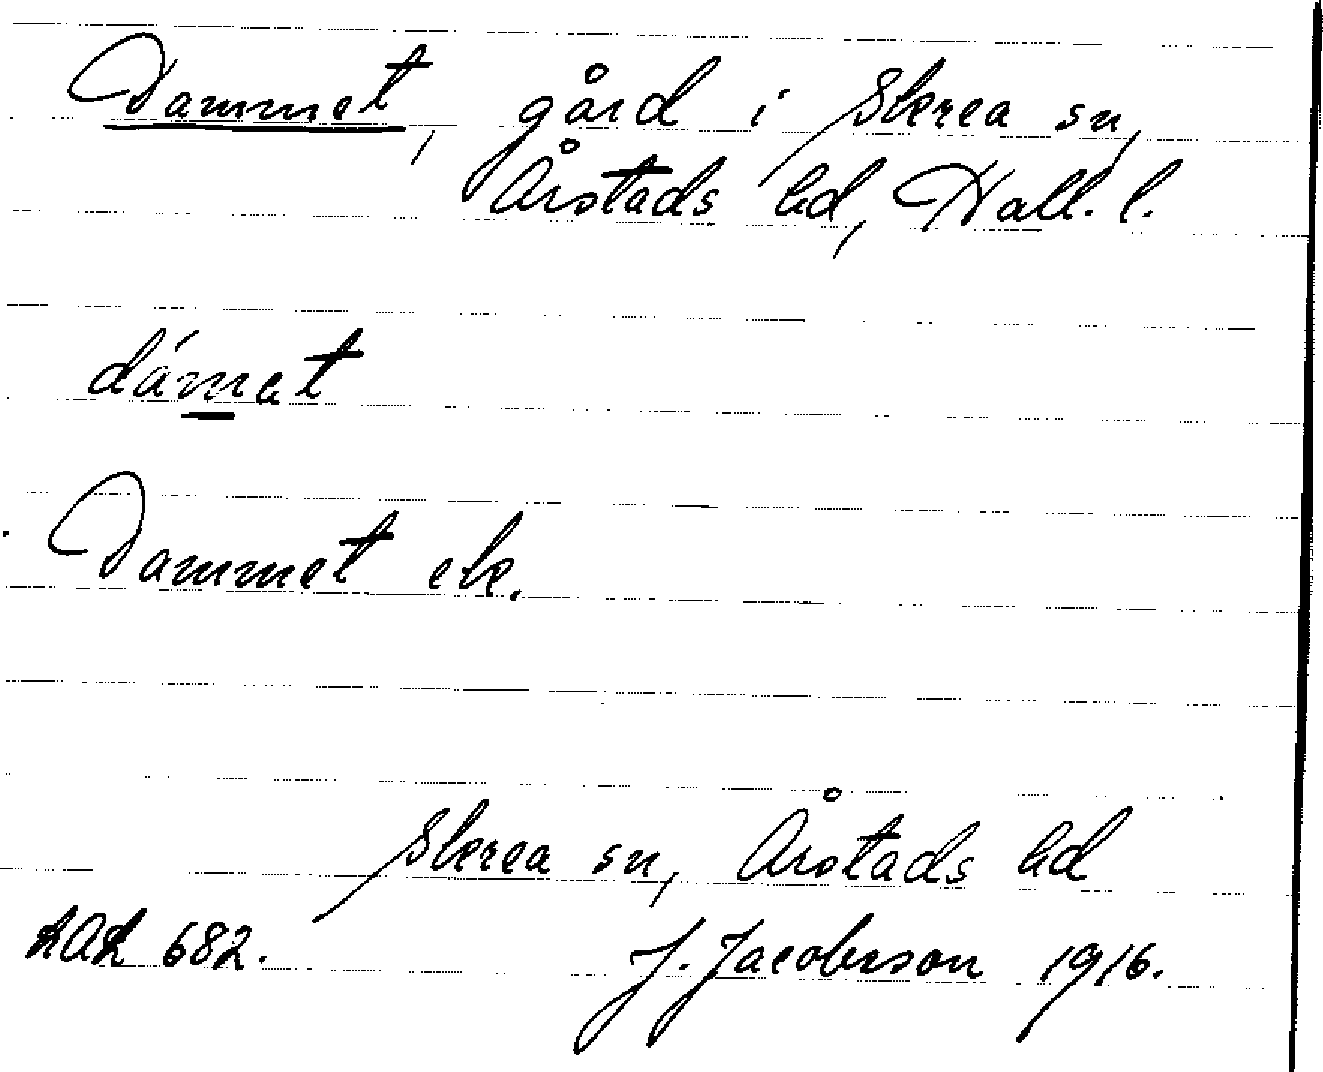 Dammet, gård i Skrea sn,
Årstads hd, Hall. l.
dámat
Dammet ek.
Skrea sn, Årstads hd
LAL 682. J. Jacobsson 1916.